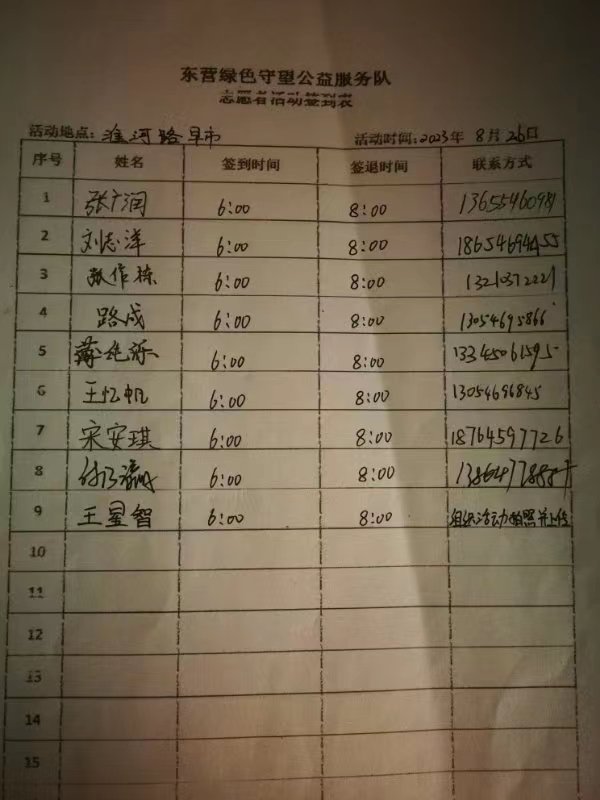 东营绿色守望公益服务队
志愿者活动签到表
活动地点：淮河路早市 活动时间：2023年 8月26日
序号 姓名 签到时间 签退时间 联系方式
1 张广润 6:00 8:00
2 刘志洋 6:00 8:00
3 张作栋 6:00 8:00 13210372221
4 路成 6:00 8:00 13054695866
5 6:00 8:00 13345061595
6 王忆帆 6:00 8:00 13054696845
7 宋安琪 6:00 8:00 18764597726
8 6:00 8:00
9 王星智 6:00 8:00 组织活动拍照并上传
10
11
12
13
14
15